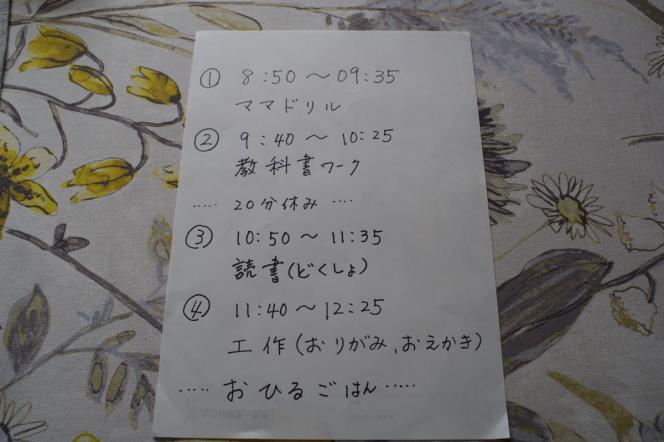 ① 8:50～09:35
ママドリル
② 9:40～10:25
教科書ワーク
····· 20分休み ····
③ 10:50～11:35
読書(どくしょ)
④ 11:40～12:25
工作(おりがみ,おえかき)
····· おひるごはん ·····